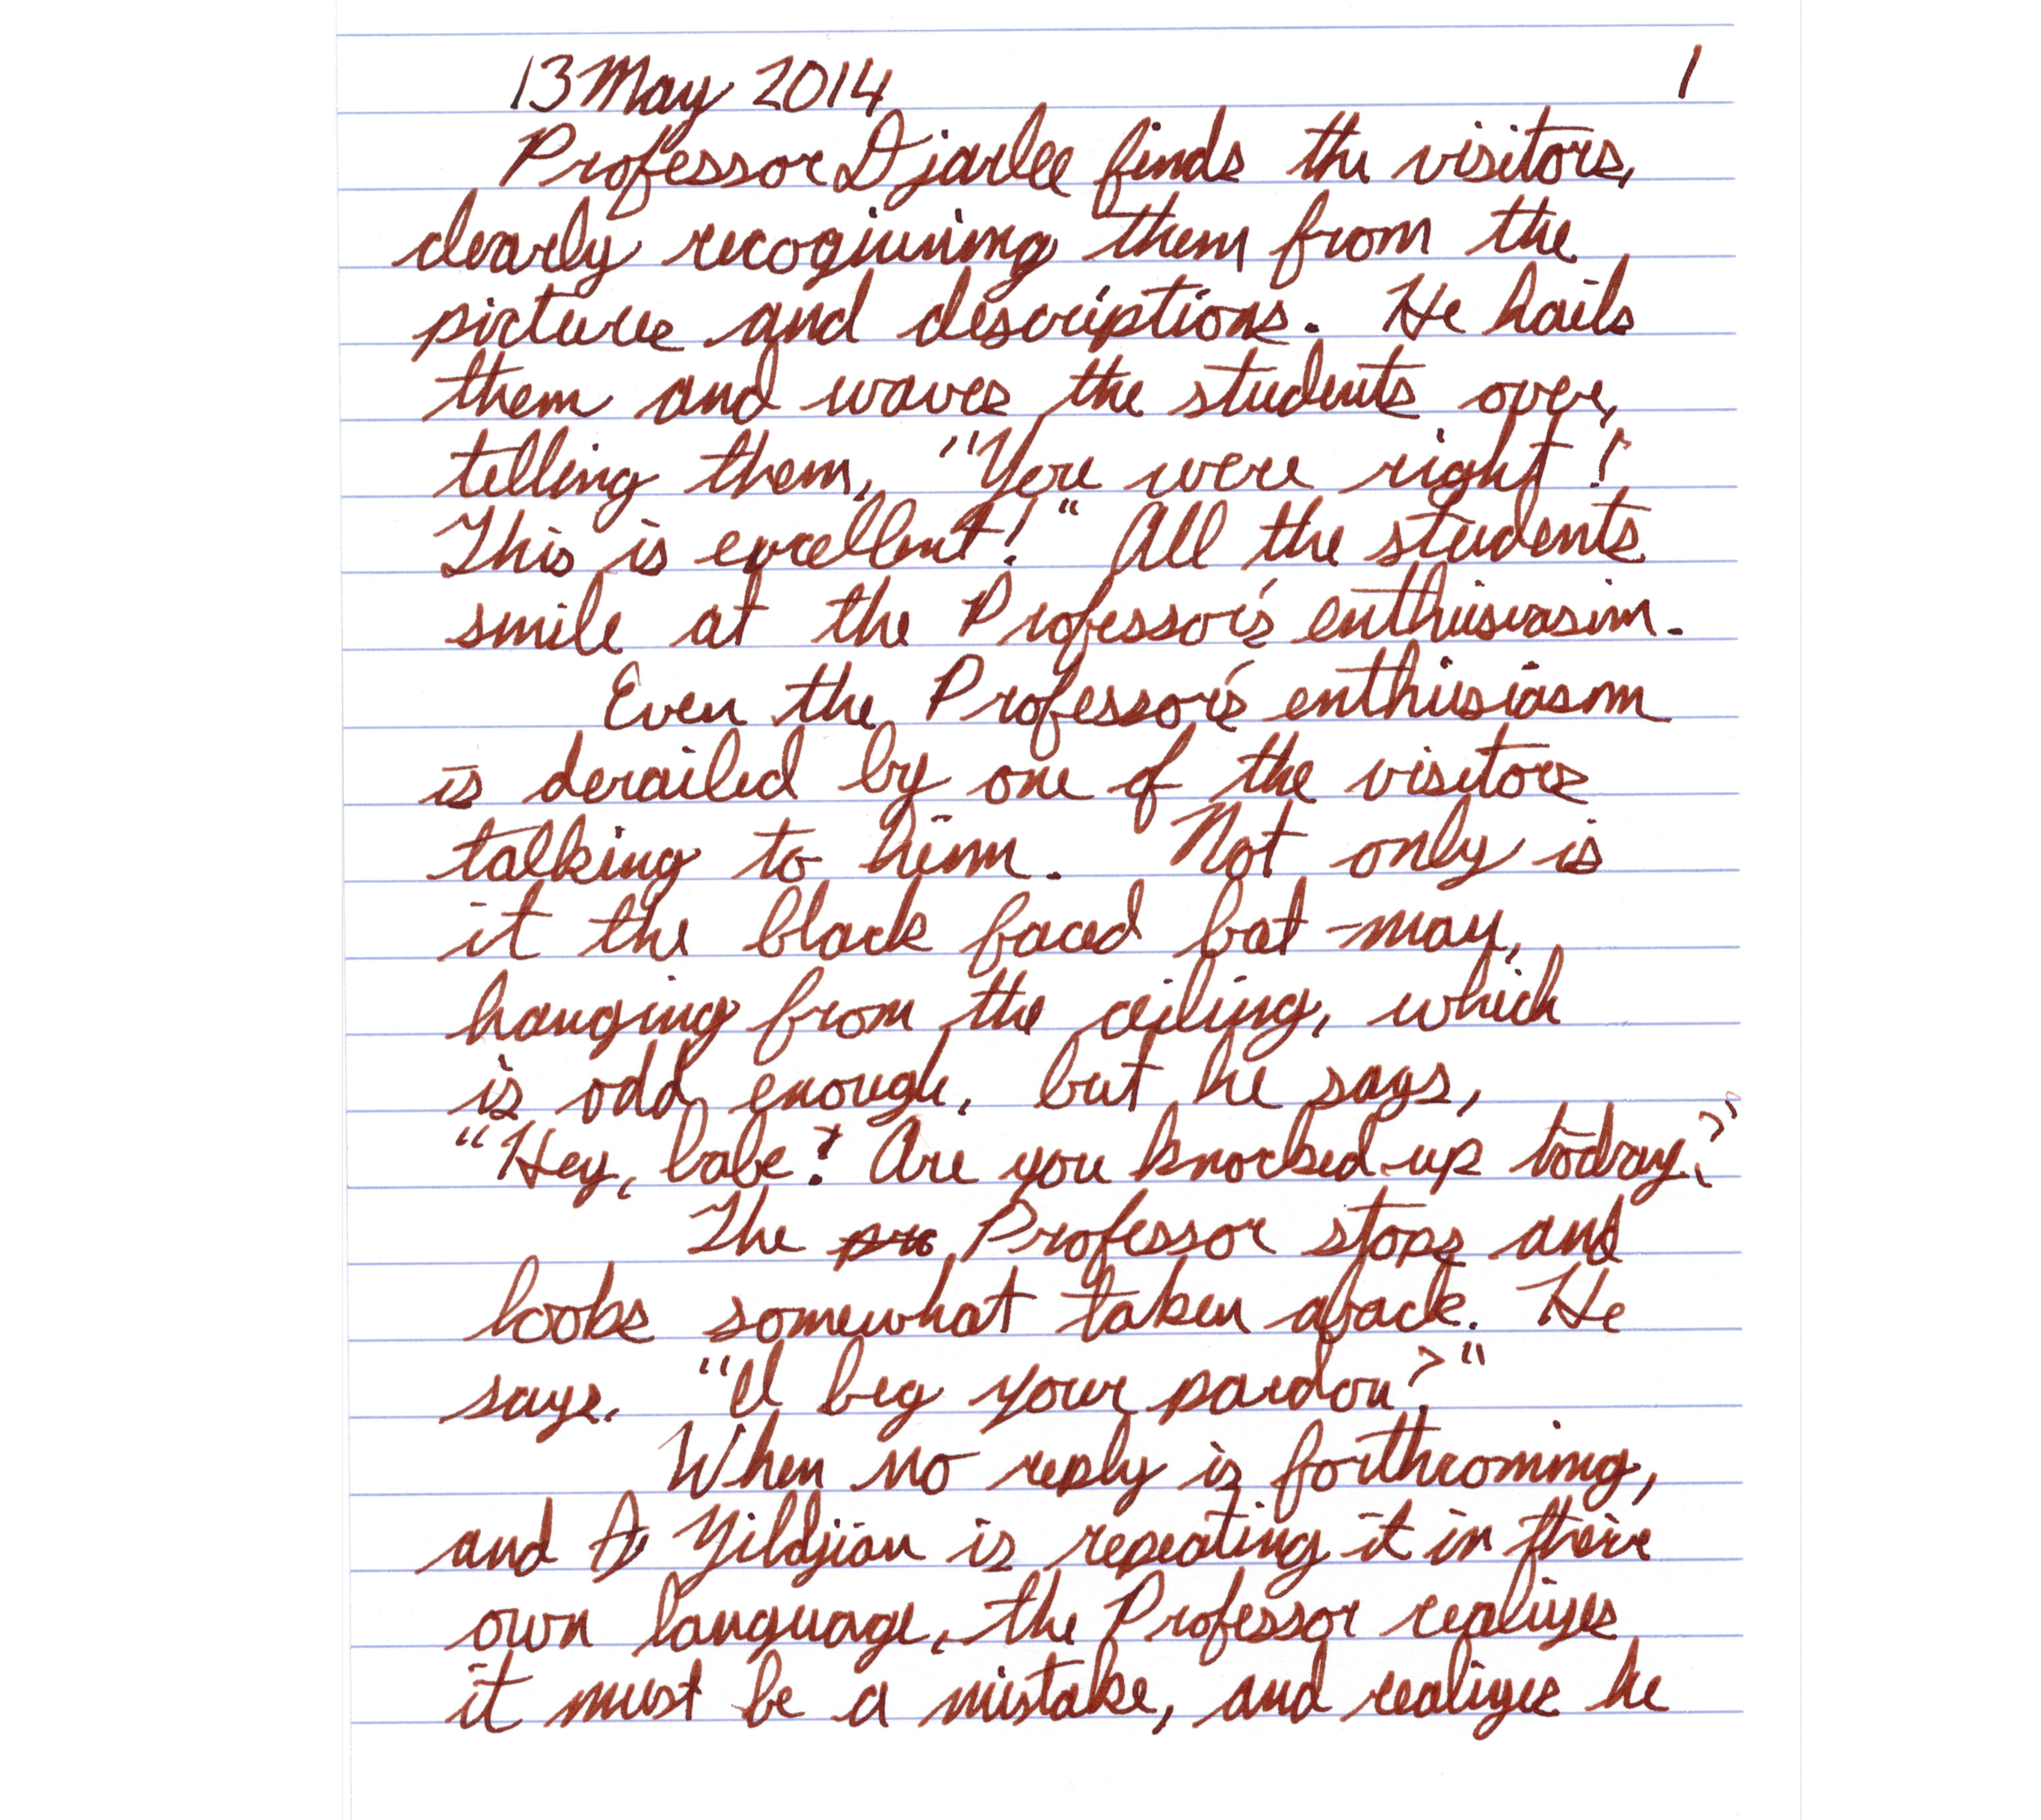 13 May 2014 1
Professor Djarlee finds the visitors,
clearly recogining them from the
picture and descriptions. He hails
them and waves the students over,
telling them, "You were right!
This is excellent!" All the students
smile at the Professor's enthusiasim.
Even the Professor's enthusiasm
is derailed by one of the visitors
talking to him. Not only is
it the black faced bat-man,
hanging from the ceiling, which
is odd enough, but he says,
"Hey, babe! Are you knocked up today?"
The pro Professor stops and
looks somewhat taken aback. He
says, "I beg your pardon?"
When no reply is forthcoming,
and A Yildjian is repeating it in their
own language, the Professor realizes
it must be a mistake, and realizes he